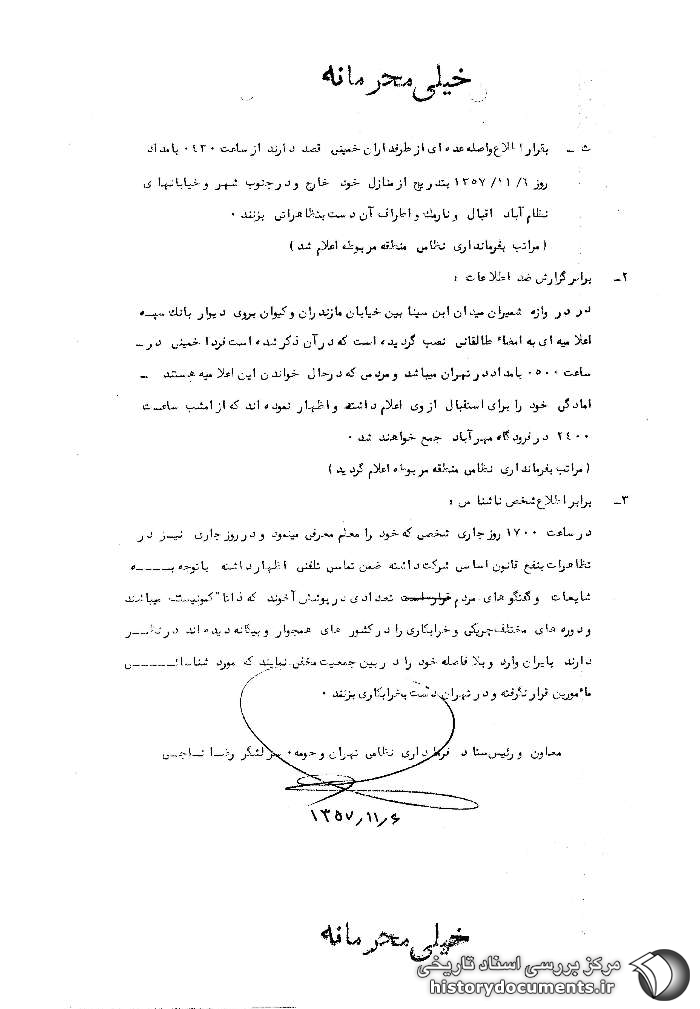 خیلی محرمانه
ث ـ بقرار اطلاع واصله عده ای از طرفداران خمینی قصد دارند از ساعت ۰۴۳۰ بامداد
روز ۱۳۵۷/۱۱/۶ بتدریج از منازل خود خارج و در جنوب شهر و خیابانهای
نظام آباد اقبال و نارمک و اطراف آن دست بتظاهراتی بزنند ۰
( مراتب بفرمانداری نظامی منطقه مربوطه اعلام شد )
۲ـ برابر گزارش ضد اطلاعات :
در دروازه شمیران میدان ابن سینا بین خیابان مازندران و کیوان بروی دیوار بانک سپه
اعلامیه ای به امضاء طالقانی نصب گردیده است که در آن ذکر شده است فردا خمینی در ـ
ساعت ۰۵۰۰ بامداد در تهران میباشد و مردمی که در حال خواندن این اعلامیه هستند ـ
امادگی خود را برای استقبال از وی اعلام داشته و اظهار نموده اند که از امشب ساعت
۲۴۰۰ در فرودگاه مهرآباد جمع خواهند شد ۰
( مراتب بفرمانداری نظامی منطقه مربوطه اعلام گردید )
۳ـ برابر اطلاع شخص ناشناس :
در ساعت ۱۷۰۰ روز جاری شخصی که خود را معلم معرفی مینمود و در روز جاری نیز در
تظاهرات بنفع قانون اساسی شرکت داشته ضمن تماس تلفنی اظهار داشته باتوجه بـــه
شایعات و گفتگوهای مردم قرار است تعدادی در پوشش آخوند که ذاتا" کمونیست میباشند
و دوره های مختلف چریکی و خرابکاری را در کشور های همجوار و بیگانه دیده اند در نظر
دارند بایران وارد و بلافاصله خود را در بین جمعیت مخفی نمایند که مورد شناسائی
مأمورین قرار نگرفته و در تهران دست بخرابکاری بزنند ۰
معاون و رئیس ستاد فرمانداری نظامی تهران و حومه ۰ سرلشگر رضا ناجی
۱۳۵۷٫۱۱٫۶
خیلی محرمانه
مرکز بررسی اسناد تاریخی
historydocuments.ir